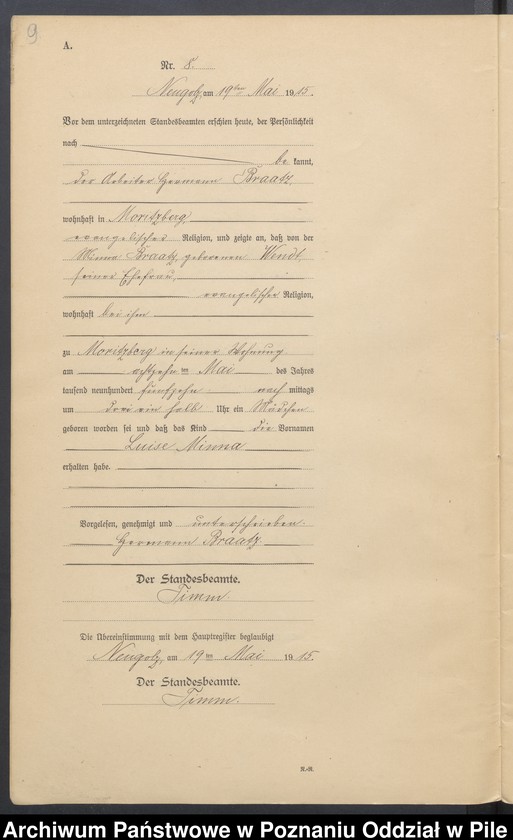 9
A.
Nr. 8.
Neugolz, am 19ten Mai 1915.
Vor dem unterzeichneten Standesbeamten erschien heute, der Persönlichkeit
nach
be kannt,
der Arbeiter Hermann Braatz,
wohnhaft in Moritzberg,
evangelischer Religion, und zeigte an, daß von der
Minna Braatz, geborenen Wendt,
seiner Ehefrau,
evangelischer Religion,
wohnhaft bei ihm
zu Moritzberg in seiner Wohnung
am achtzehn ten Mai des Jahres
tausend neunhundert fünfzehn nach mittags
um drei ein halb Uhr ein Mädchen
geboren worden sei und daß das Kind die Vornamen
Luise Minna
erhalten habe.
Vorgelesen, genehmigt und unterschrieben.
Hermann Braatz.
Der Standesbeamte.
Timm.
Die Übereinstimmung mit dem Hauptregister beglaubigt
Neugolz, am 19ten Mai 1915.
Der Standesbeamte.
Timm.
Archiwum Państwowe w Poznaniu Oddział w Pile